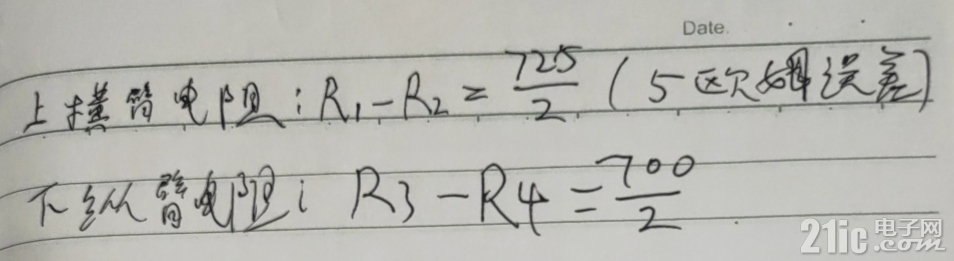 Date.
上横臂电阻:R₁-R₂=725/2 (5欧姆误差)
下纵臂电阻:R3-R4=700/2
21ic电子网.com